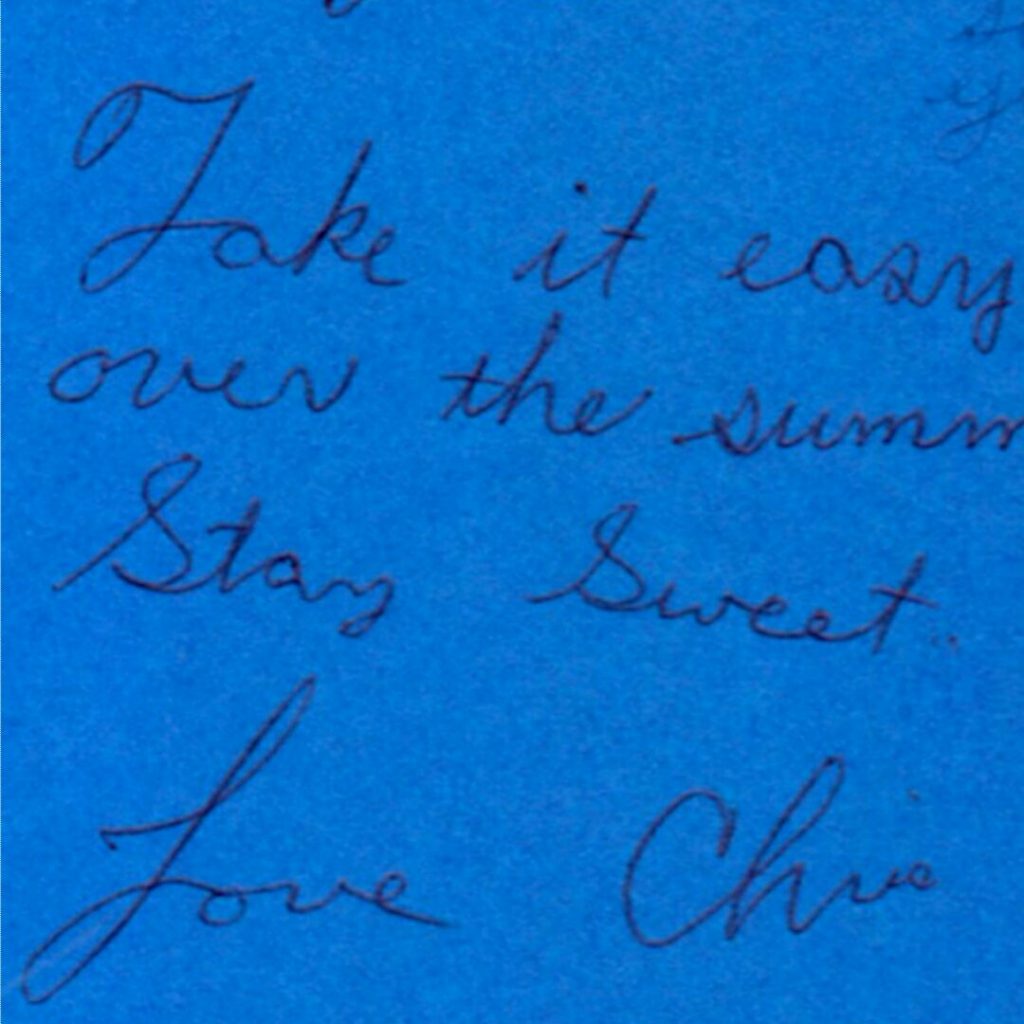 Take it easy
over the summ
Stay Sweet..
Love